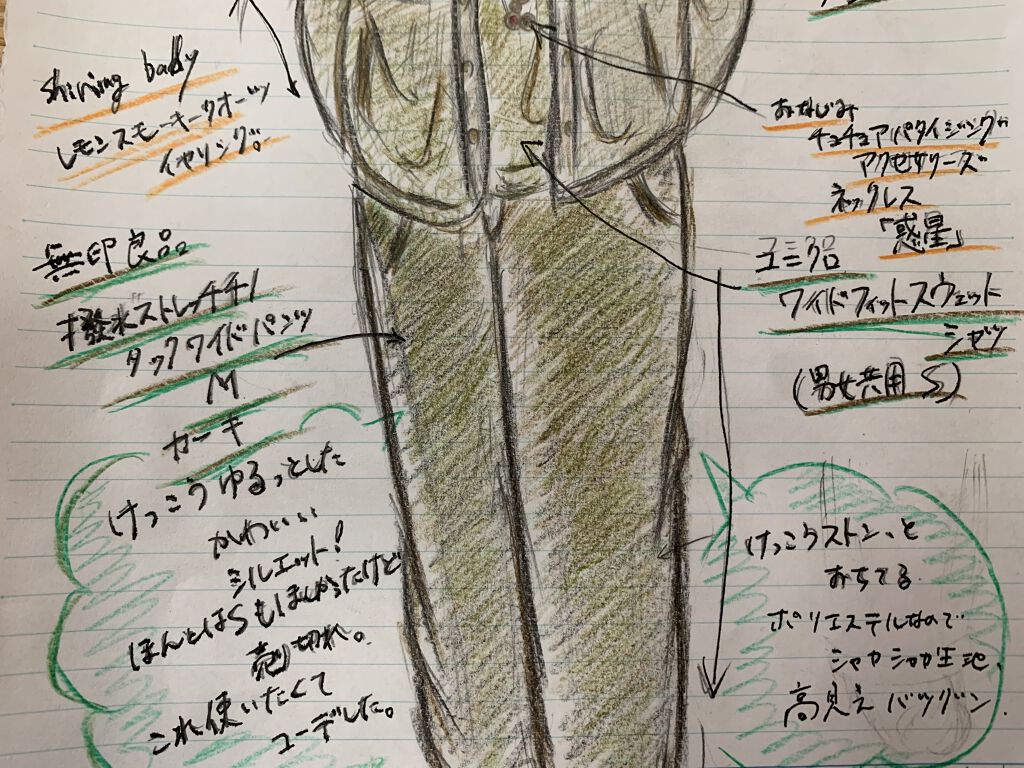 shining baby
レモンスモーキークオーツ
イヤリング。
無印良品
撥水ストレッチチノ
タックワイドパンツ
M
カーキ
けっこうゆるっとした
かわいい
シルエット!
ほんとはSもほしかったけど
売り切れ。
これ使いたくて
コーデした。
おなじみ
チョチョアパタイジングが
アクセサリーズ
ネックレス
「惑星」
ユニクロ
ワイドフィットスウェット
シャツ
(男女共用 S)
けっこうストンっと
おちてる
ポリエステルなので
シャカシャカ生地、
高見えバツグン.